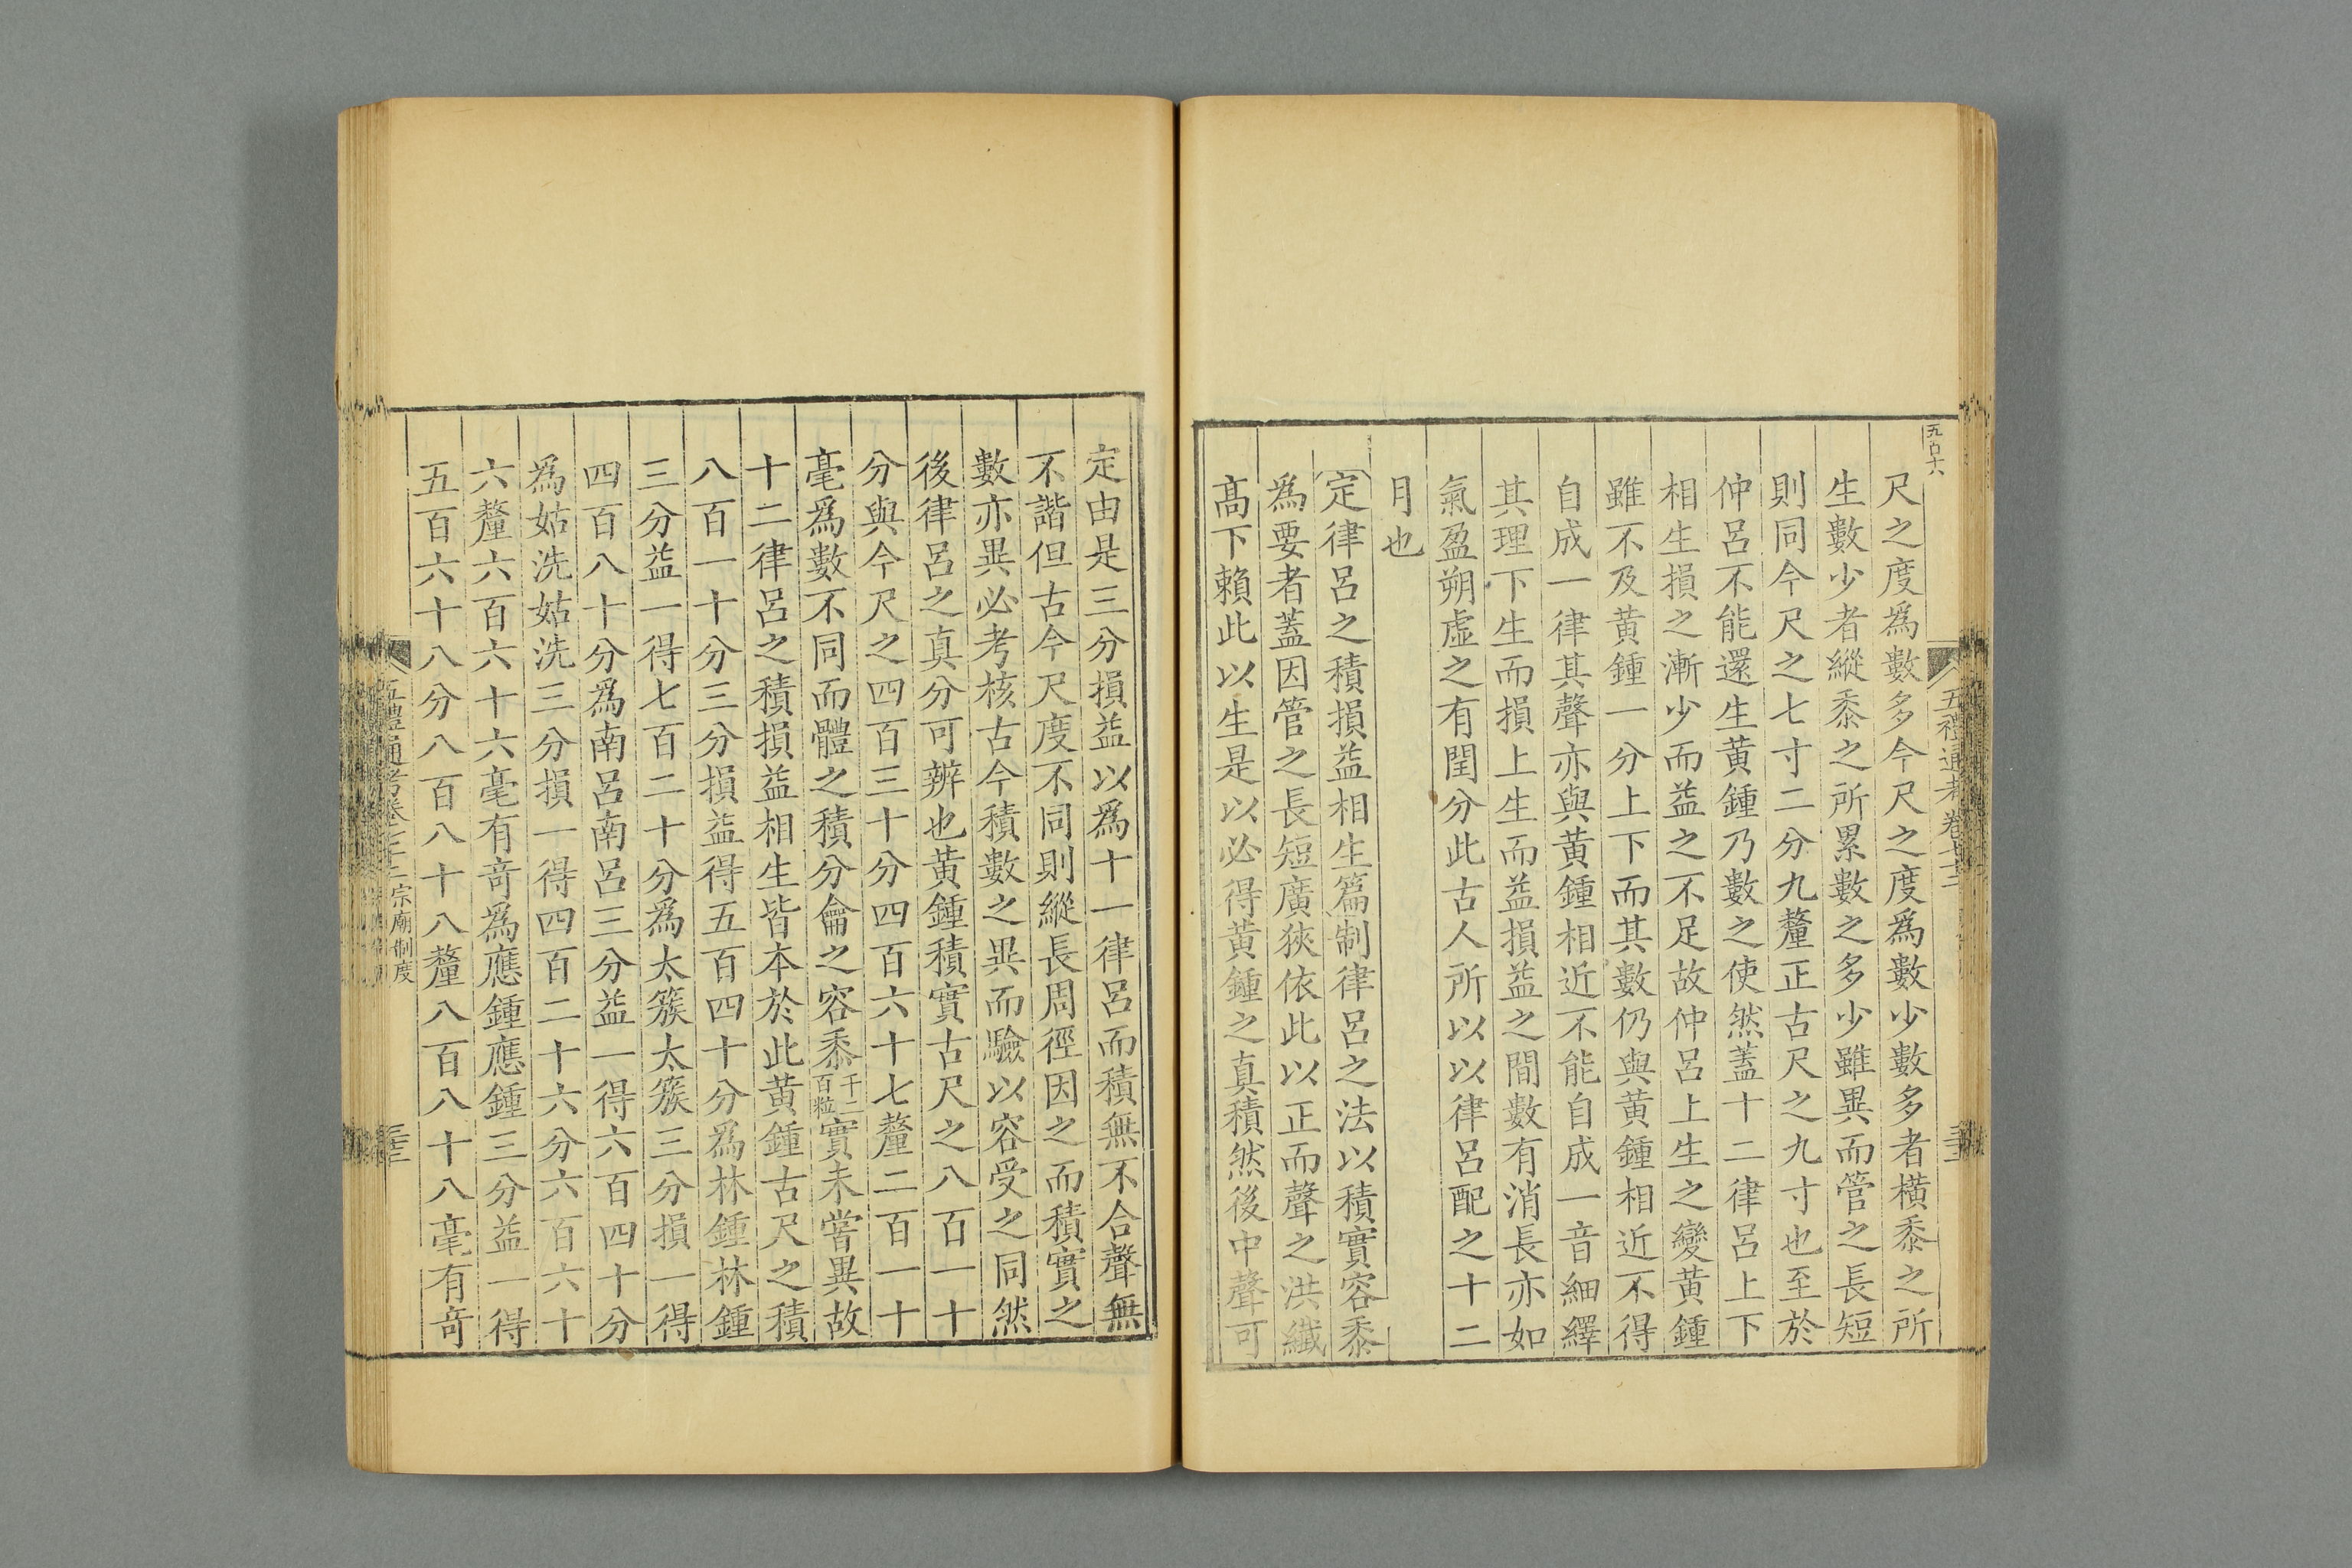 五百十六
尺之度爲數多今尺之度爲數少數多者橫黍之所
生數少者縱黍之所累數之多少雖異而管之長短
則同今尺之七寸二分九釐正古尺之九寸也至於
仲呂不能還生黃鍾乃數之使然蓋十二律呂上下
相生損之漸少而益之不足故仲呂上生之變黃鍾
雖不及黃鍾一分上下而其數仍與黃鍾相近不得
自成一律其聲亦與黃鍾相近不能自成一音細繹
其理下生而損上生而益損益之間數有消長亦如
氣盈朔虛之有閏分此古人所以以律呂配之十二
月也
定律呂之積損益相生篇制律呂之法以積實容黍
爲要者蓋因管之長短廣狹依此以正而聲之洪纖
高下賴此以生是以必得黃鍾之真積然後中聲可
定由是三分損益以爲十一律呂而積無不合聲無
不諧但古今尺度不同則縱長周徑因之而積實之
數亦異必考核古今積數之異而驗以容受之同然
後律呂之真分可辨也黃鍾積實古尺之八百一十
分與今尺之四百三十分四百六十七釐二百一十
毫爲數不同而體之積分龠之容黍千二百粒實未嘗異故
十二律呂之積損益相生皆本於此黃鍾古尺之積
八百一十分三分損益得五百四十分爲林鍾林鍾
三分益一得七百二十分爲太簇太簇三分損一得
四百八十分爲南呂南呂三分益一得六百四十分
爲姑洗姑洗三分損一得四百二十六分六百六十
六釐六百六十六毫有奇爲應鍾應鍾三分益一得
五百六十八分八百八十八釐八百八十八毫有奇
宗廟制度